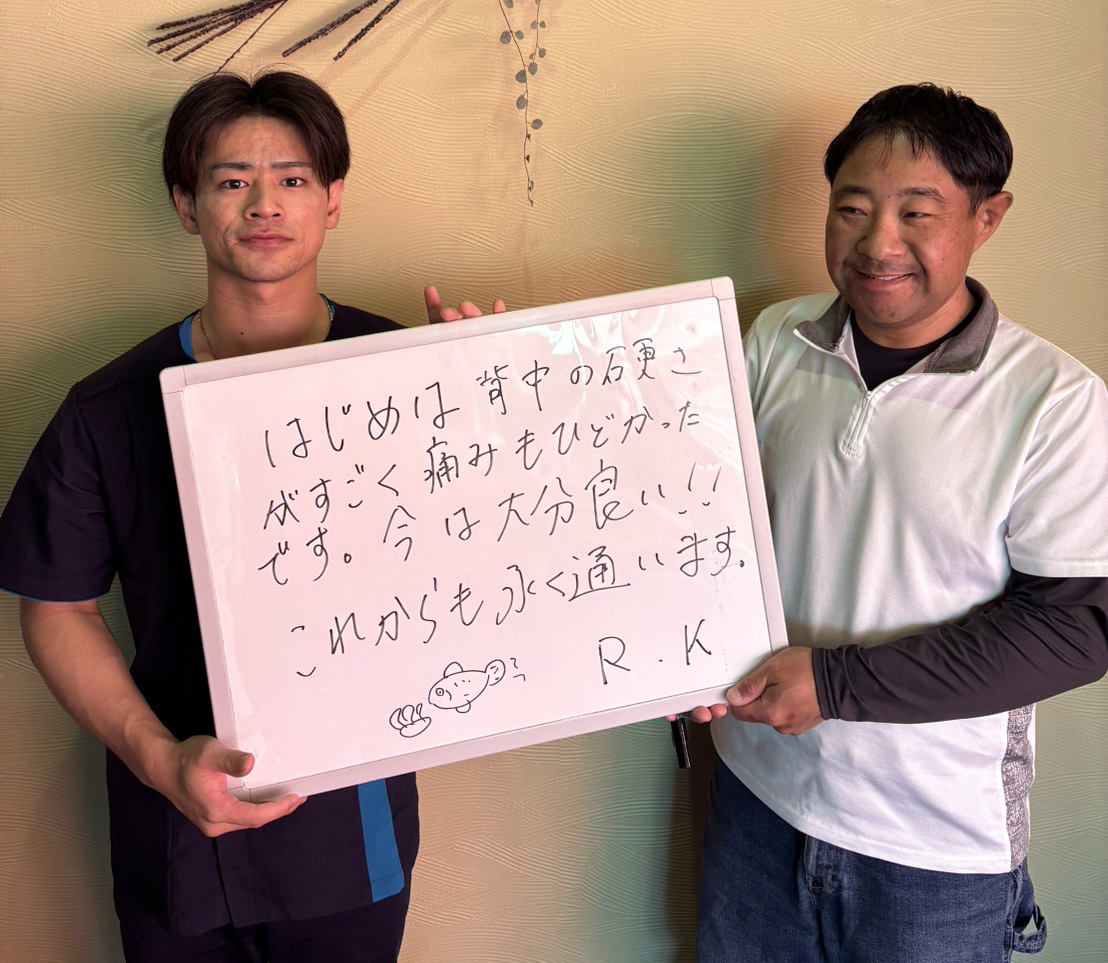 はじめは背中の硬さ
がすごく痛みもひどかった
です。今は大分良い!!
これからも永く通います。
R.K